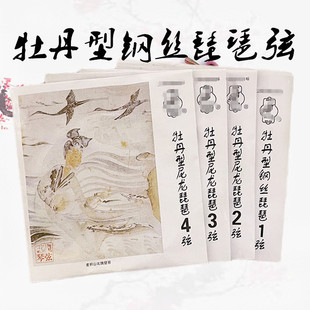 牡丹型钢丝琵琶弦
牡丹型尼龙琵琶4弦
牡丹型尼龙琵琶3弦
牡丹型尼龙琵琶2弦
牡丹型钢丝琵琶1弦